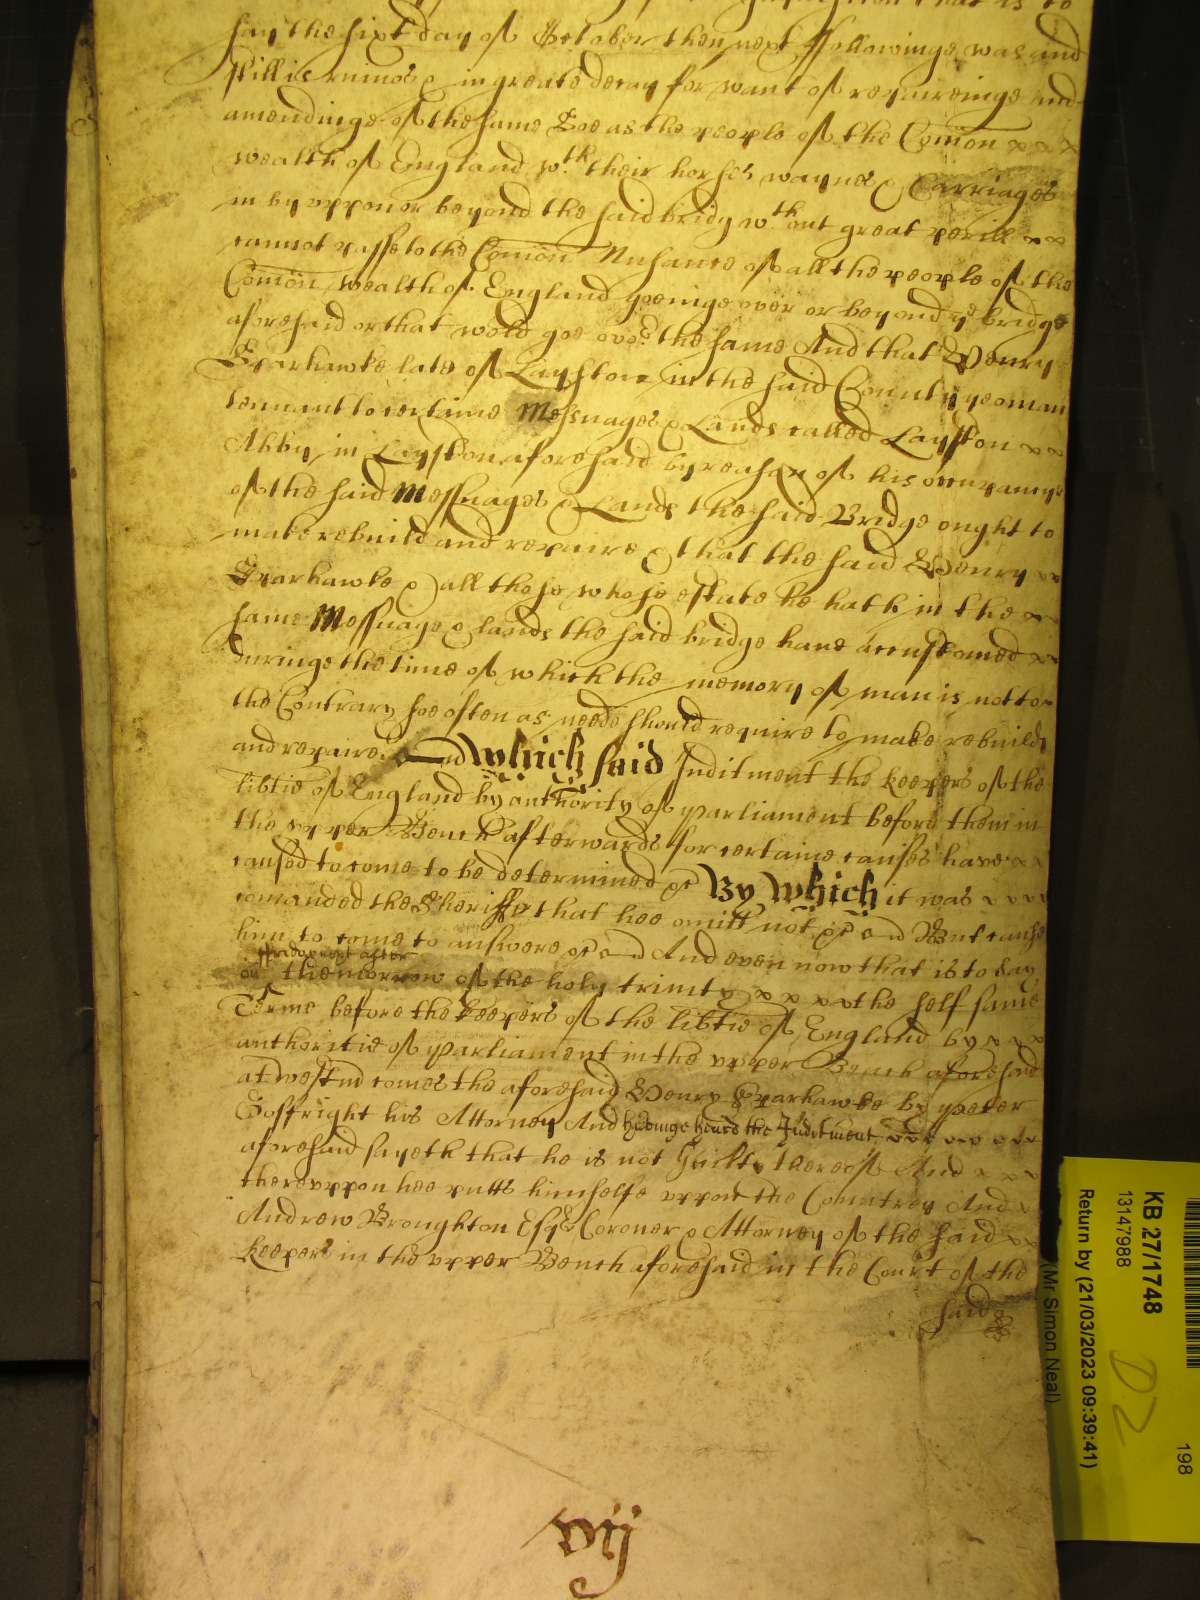 that is to
say the sixt day of October then next ffollowinge was and
still is ruinos & in greate decay for want of repaireinge and
amendinge of the same Soe as the people of the Comon
wealth of England wth their horses waynes & Carriages
in by vppon or beyond the said bridg wthout great perill
cannot passe to the Comon Nusance of all the people of the
Comon wealth of England goeinge over or beyond ye bridge
aforesaid or that wold goe over the same And that Henry
Sparhawke late of Layston in the said County yeoman
tennant to certaine Messuages & Lands called Layston
Abby in Layston aforesaid by reason of his occupancye
of the said Messuages & Lands the said Bridge ought to
make rebuild and repaire & that the said Henry
Sparhawke & all those whose estate he hath in the
same Messuage & lands the said bridge haue accustomed
duringe the time of which the memory of man is not to
the Contrary soe often as neede should require to make rebuild
and repaire And Which said Inditment the keepers of the
libtie of England by authority of parliament before them in
the vpper Bench afterwards for certaine causes have
caused to come to be determined &c By Which it was
comanded the Sheriffe that hee omitt not &c and But cause
him to come to answere &c and And even now that is to say
ffriday next after
on the morrow of the holy trinity the self same
Terme before the keepers of the libtie of England by
authoritie of parliament in the vpper Bench aforesaid
at westm comes the aforesaid Henry Sparhawke by peter
Goffright his Attorney And haveinge heard the Inditment
aforesaid sayeth that he is not Guilty thereof And
therevppon hee putts himselfe vppon the Countrey And
Andrew Broughton Esqr Coroner & Attorney of the said
keepers in the vpper Bench aforesaid in the Court of the
said
vij
KB 27/1748
13147988
Return by (21/03/2023 09:39:41)
(Mr Simon Neal)
D2
198